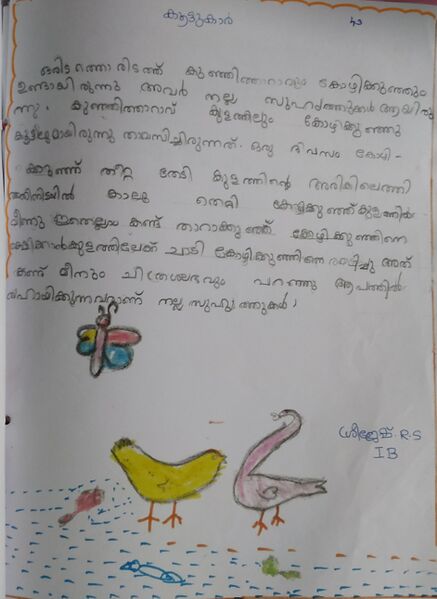 കൂട്ടുകാർ
ഒരിടത്തൊരിടത്ത് കുഞ്ഞിത്താറാവും കോഴിക്കുഞ്ഞും
ഉണ്ടായിരുന്നു അവർ നല്ല സുഹൃത്തുക്കൾ ആയിരു
ന്നു. കുഞ്ഞിത്താറാവ് കുളത്തിലും കോഴിക്കുഞ്ഞു
കൂട്ടിലുമായിരുന്നു താമസിച്ചിരുന്നത്. ഒരു ദിവസം കോഴി-
ക്കുഞ്ഞ് തീറ്റ തേടി കുളത്തിന്റെ അരികിലെത്തി
അതിനിടയിൽ കാലു തെറ്റി കോഴിക്കുഞ്ഞ് കുളത്തിൽ
വീണു ഇതെല്ലാം കണ്ട് താറാക്കുഞ്ഞ് കോഴിക്കുഞ്ഞിനെ
രക്ഷിക്കാൻ കുളത്തിലേക്ക് ചാടി കോഴിക്കുഞ്ഞിനെ രക്ഷിച്ചു അത്
കണ്ട് മീനും ചിത്രശലഭവും പറഞ്ഞു ആപത്തിൽ
സഹായിക്കുന്നവരാണ് നല്ല സുഹൃത്തുക്കൾ!
R.S
I B